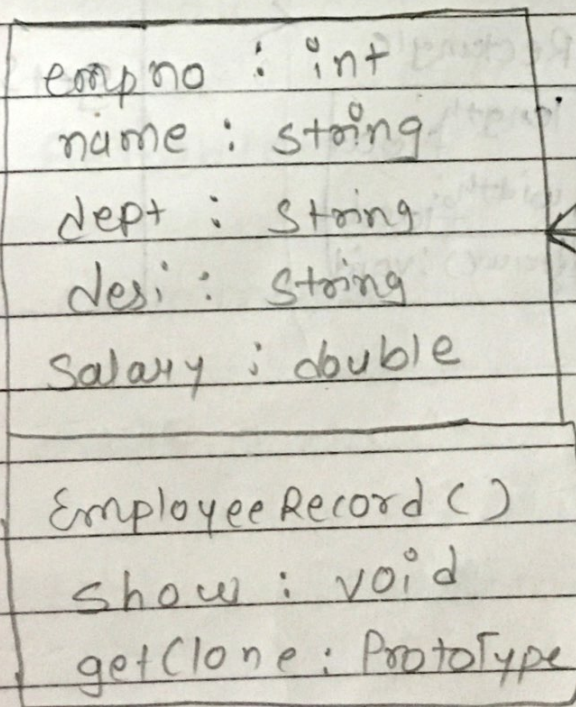 empno : int
name : string
dept : string
desi : string
Salary : double
EmployeeRecord ()
show : void
getClone : ProtoType